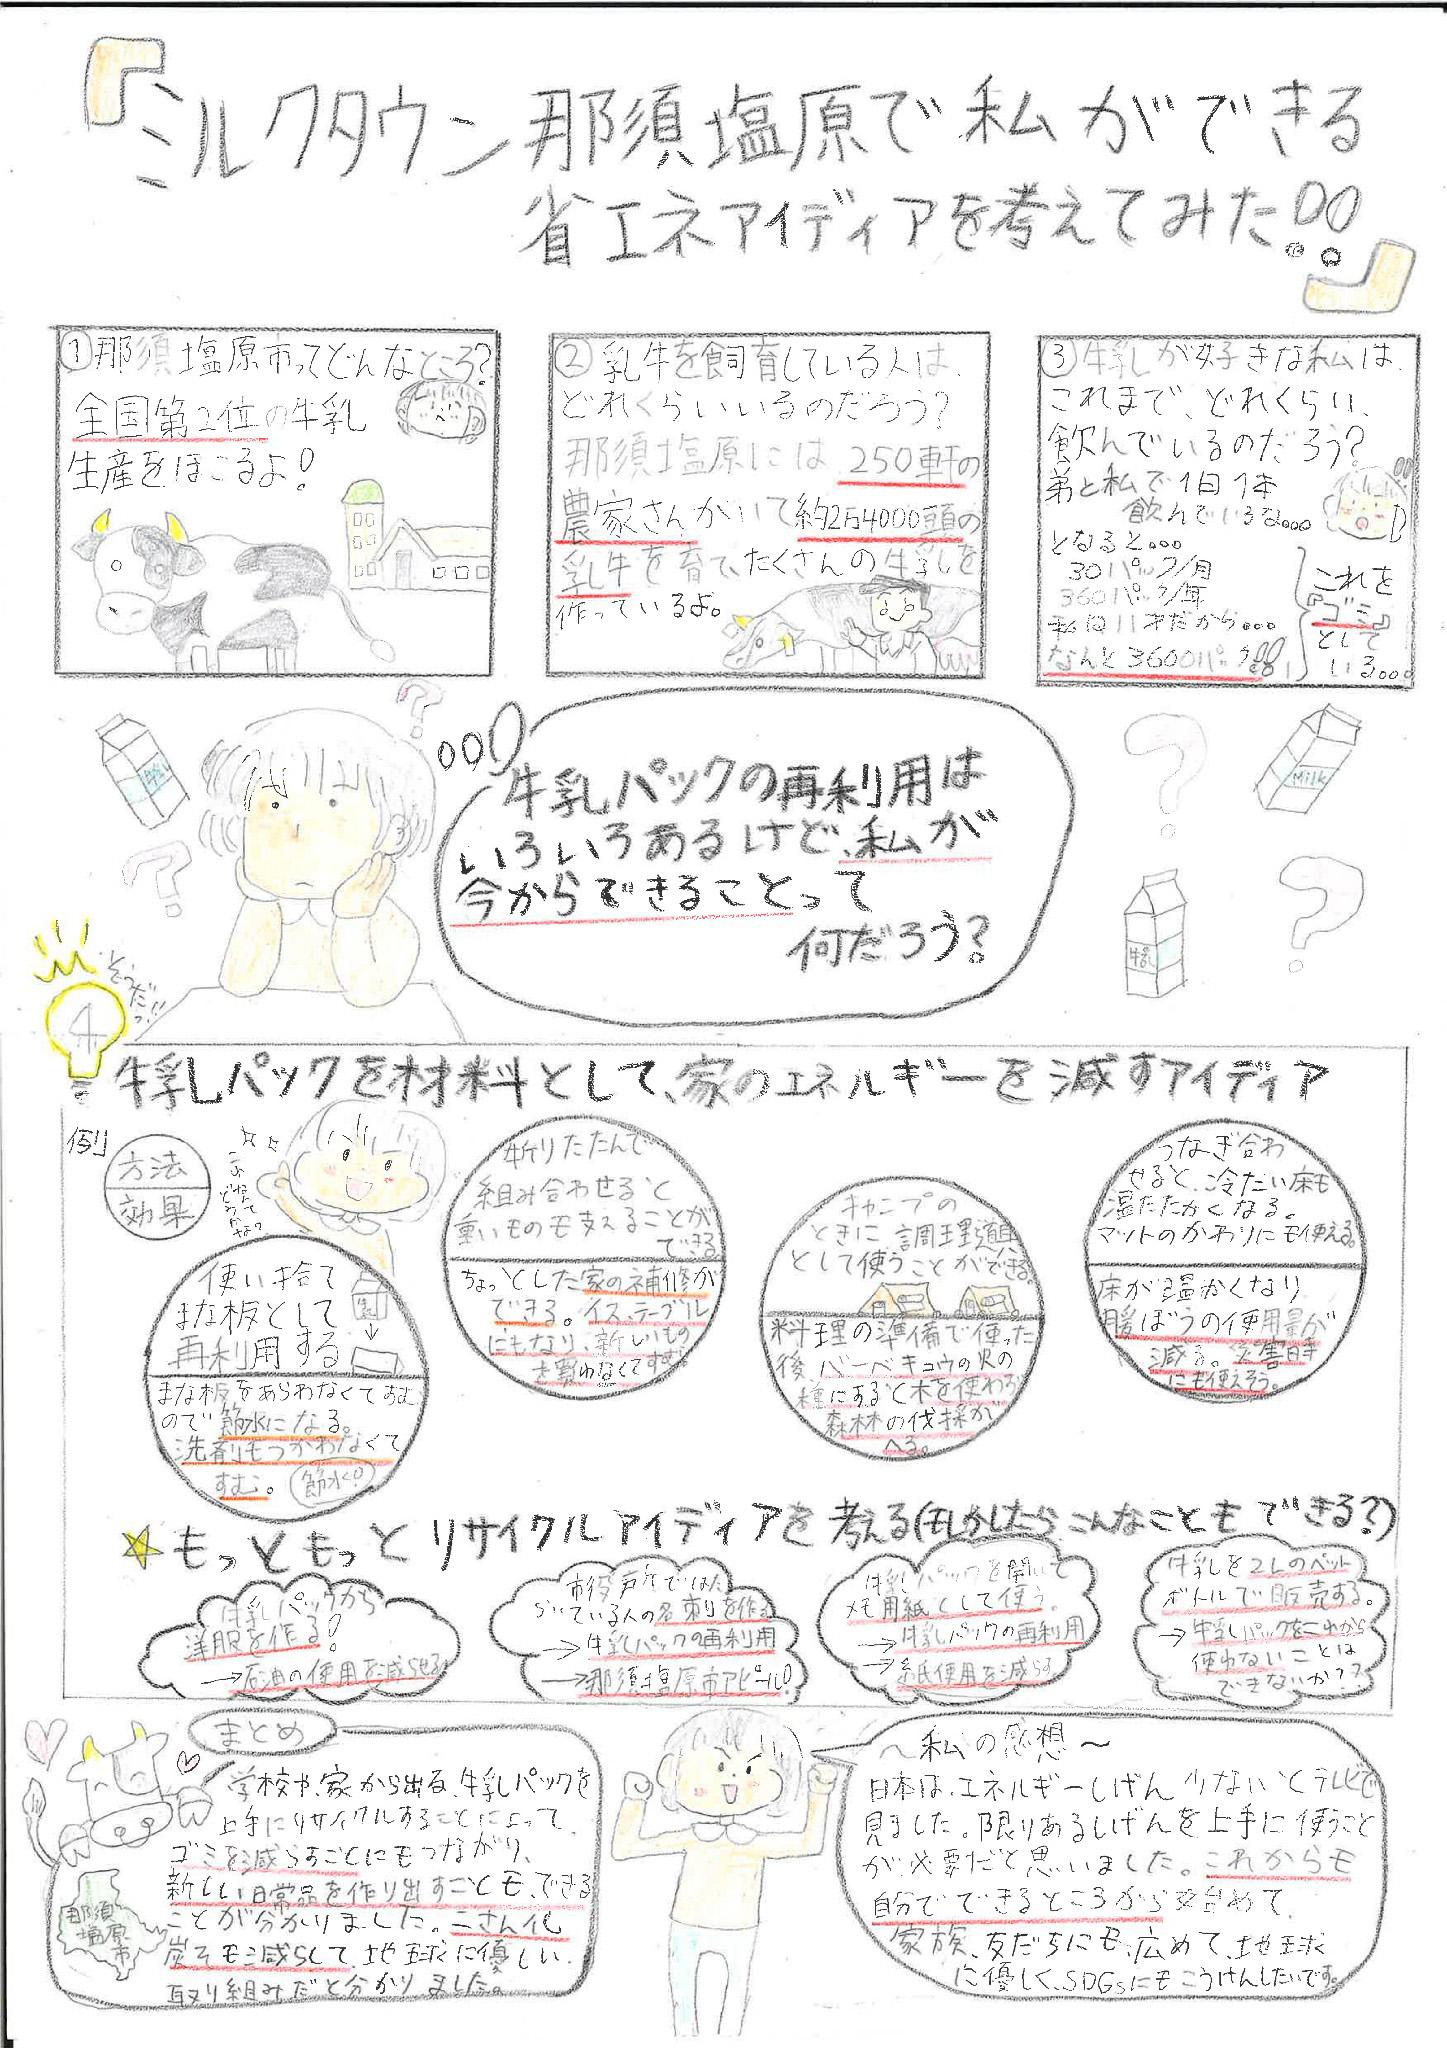 『ミルクタウン那須塩原で私ができる
省エネアイディアを考えてみた!!』
①那須塩原市ってどんなところ?
全国第2位の牛乳
生産をほこるよ!
②乳牛を飼育している人は、
どれくらいいるのだろう?
那須塩原には250軒の
農家さんがいて約2万4000頭の
乳牛を育て、たくさんの牛乳を
作っているよ。
③牛乳が好きな私は、
これまで、どれくらい、
飲んでいるのだろう?
弟と私で1日1本
飲んでいるな...
となると...
30パック/月
360パック/年
私は11才だから...
なんと3600パック!!
これを
「ゴミ」
として
いる...
牛乳
Milk
牛乳
牛乳パックの再利用は
いろいろあるけど、私が
今からできることって
何だろう?
そうだっ!!
4
牛乳パックを材料として、家のエネルギーを減すアイディア
例
方法
効果
使い捨て
まな板として
再利用する
まな板をあらわなくてすむ
ので節水になる。
洗剤もつかわなくて
すむ。
節水!
折りたたんで
組み合わせると
重いものも支えることが
できる
ちょっとした家の補修が
できる。イス、テーブル
にもなり、新しいもの
を買わなくてすむ。
キャンプの
ときに調理道具
として使うことができる。
料理の準備で使った
後、バーベキュウの火の
種にすると木を使わず
森林の伐採が
へる。
つなぎ合わ
せると、冷たい床も
温たたかくなる。
マットのかわりにも使える。
床が温かくなり
暖ぼうの使用量が
減る。災害時
にも使えそう。
もっともっとリサイクルアイディアを考える(もしかしたらこんなこともできる?)
牛乳パックから
洋服を作る!
→石油の使用を減らせる
市役所ではた
らいている人の名刺を作る
→牛乳パックの再利用
→那須塩原市アピール!
牛乳パックを開いて
メモ用紙として使う。
→牛乳パックの再利用
→紙使用を減らす
牛乳を2Lのペット
ボトルで販売する。
→牛乳パックをこれから
使わないことは
できないか??
まとめ
学校や、家から出る、牛乳パックを
上手にリサイクルすることによって、
ゴミを減らすことにもつながり、
新しい日常品を作り出すことも、できる
ことが分かりました。二さん化
炭そも減らして、地球に優しい
取り組みだと分かりました。
那須
塩原
市
～私の感想～
日本は、エネルギーしげん少ないとテレビで
見ました。限りあるしげんを上手に使うこと
が必要だと思いました。これからも
自分でできるところから始めて、
家族、友だちにも、広めて、地球
に優しく、SDGsにもこうけんしたいです。